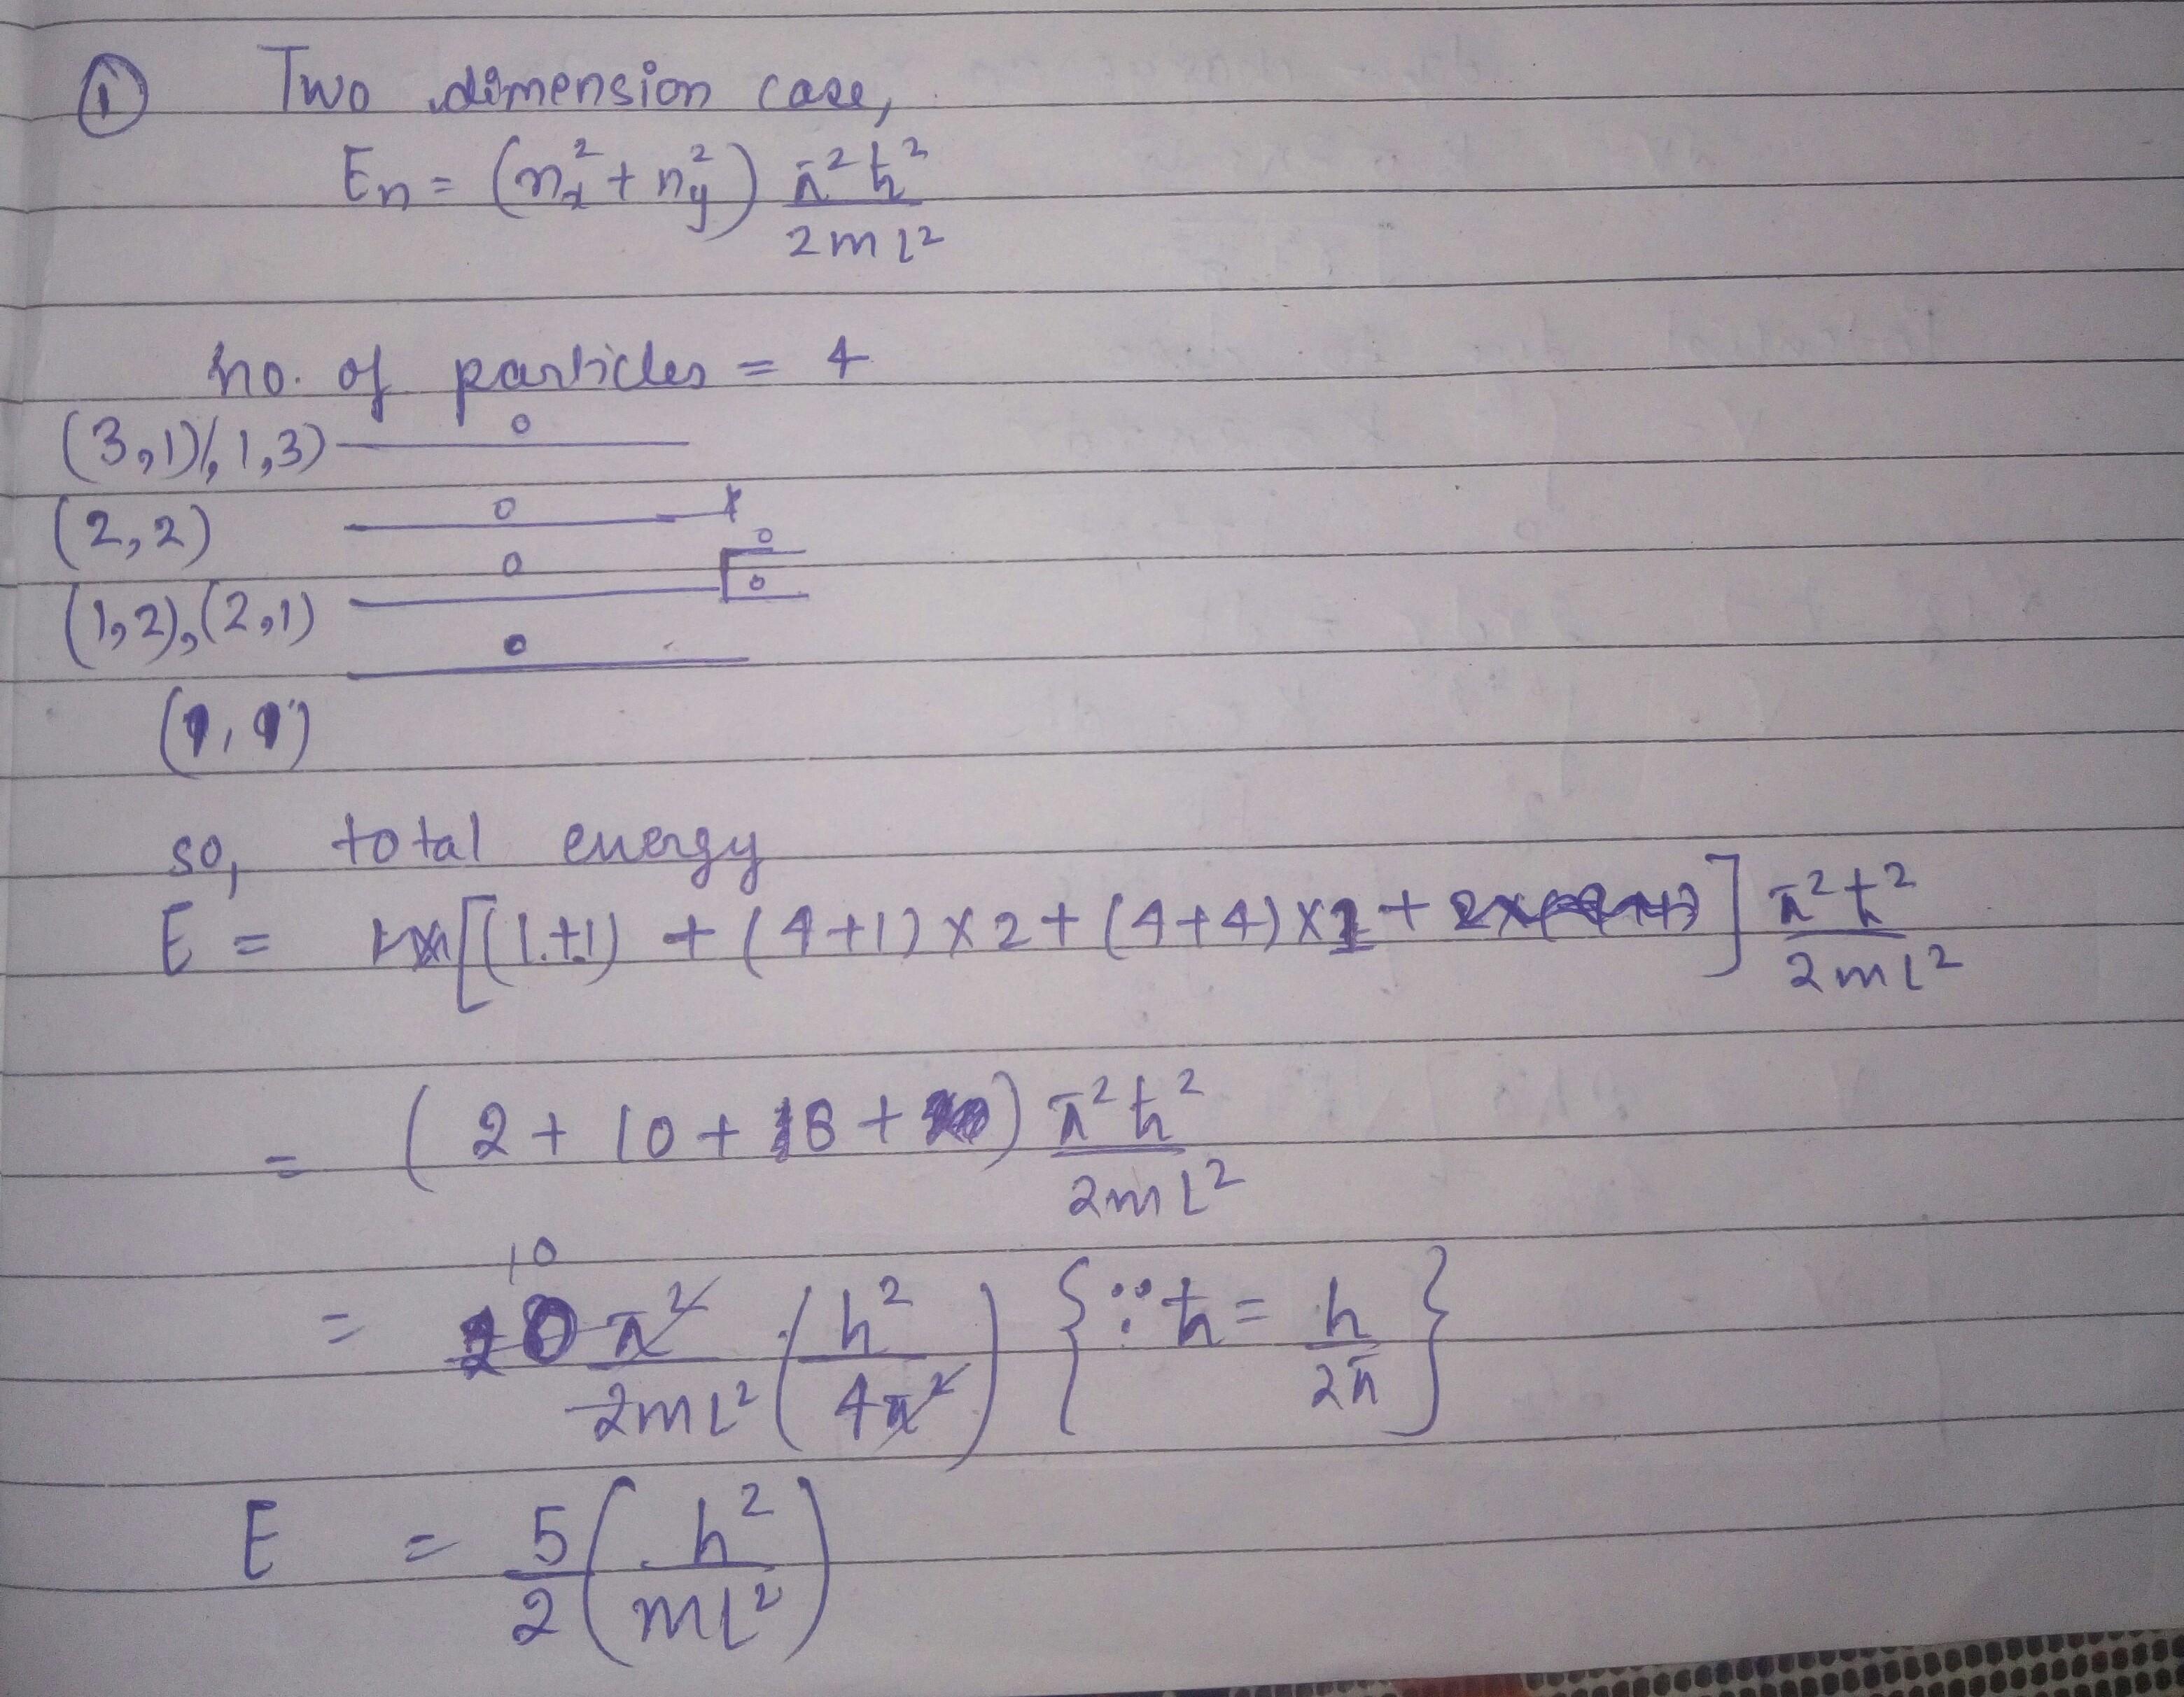 ① Two dimension case,
En = (nx² + ny²) π²ħ² / 2mL²
no. of particles = 4
(3,1)(1,3)
(2,2)
(1,2),(2,1)
(1,1)
so, total energy
E = [(1+1) + (4+1)×2 + (4+4)×1 + ] π²ħ² / 2mL²
= (2 + 10 + 8 + ) π²ħ² / 2mL²
10
= 20 π² / 2mL² (h² / 4π²) {∵ ħ = h / 2π}
E = 5/2 (h² / mL²)